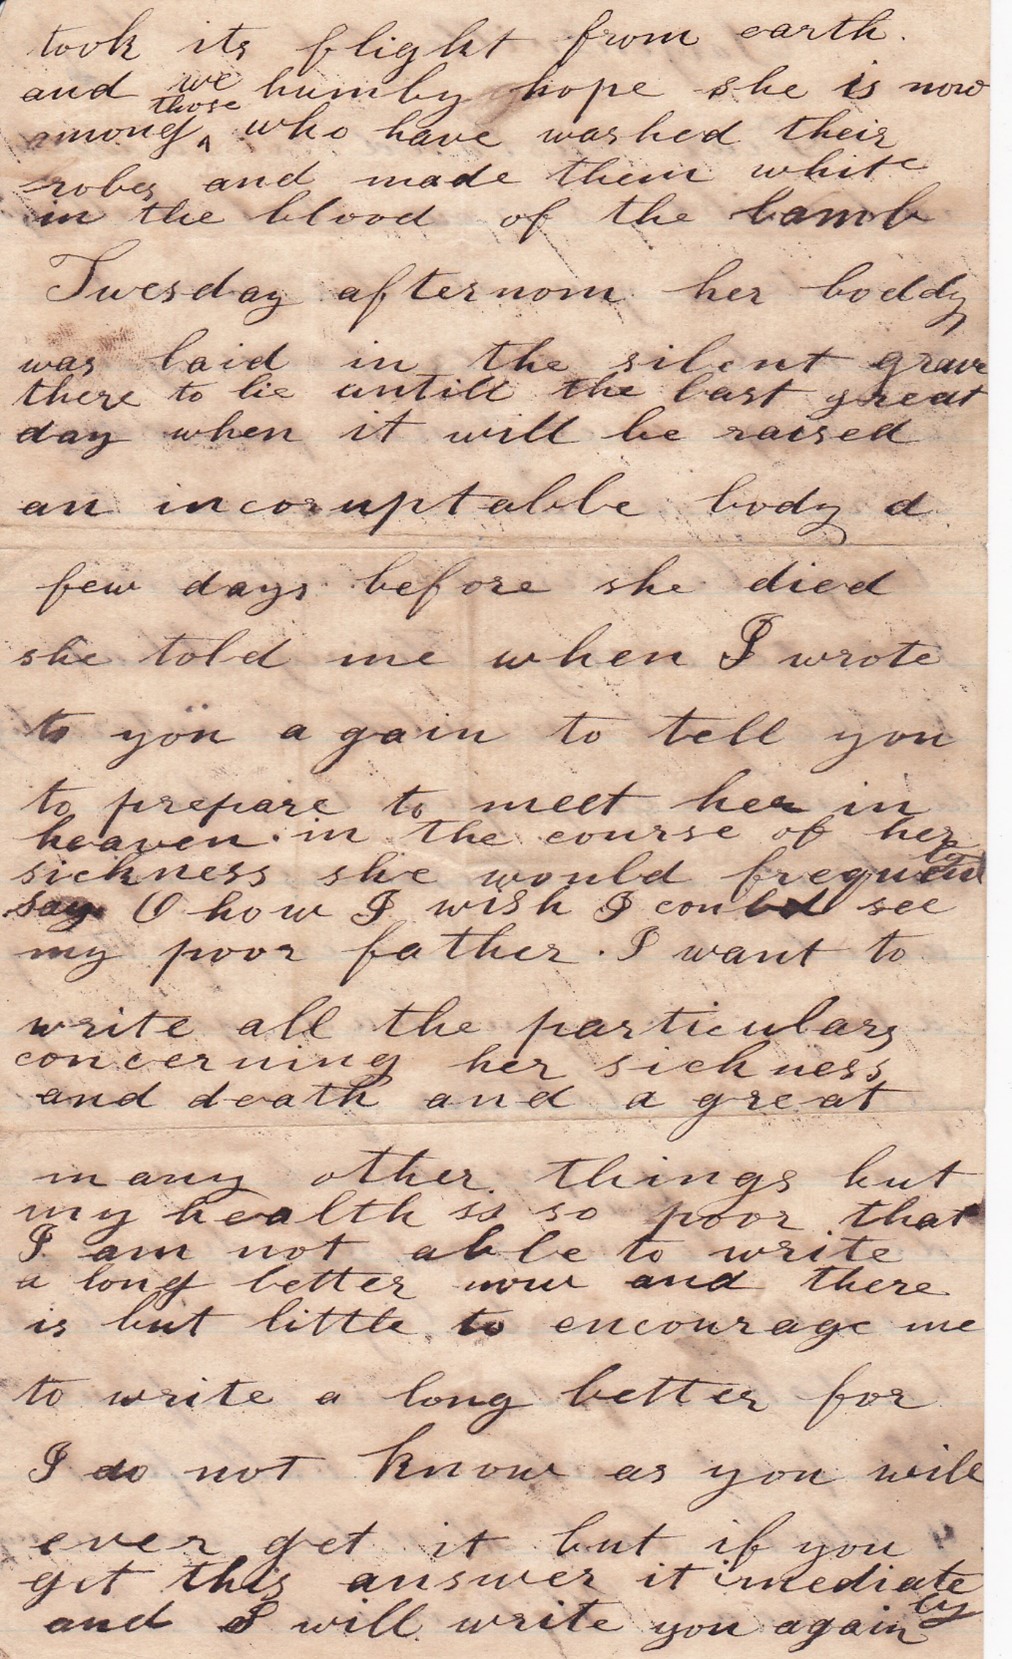 took its flight from earth.
and we humbly hope she is now
among those who have washed their
robes and made them white
in the blood of the lamb
Tuesday afternoon her boddy
was laid in the silent grave
there to lie untill the last great
day when it will be raised
an incoruptable body a
few days before she died
she told me when I wrote
to you again to tell you
to prepare to meet her in
heaven. in the course of her
sickness she would frequently
say O how I wish I could see
my poor father. I want to
write all the particulars
concerning her sickness
and death and a great
many other things but
my health is so poor that
I am not able to write
a long letter now and there
is but little to encourage me
to write a long letter for
I do not know as you will
ever get it but if you
get this answer it imediately
and I will write you again